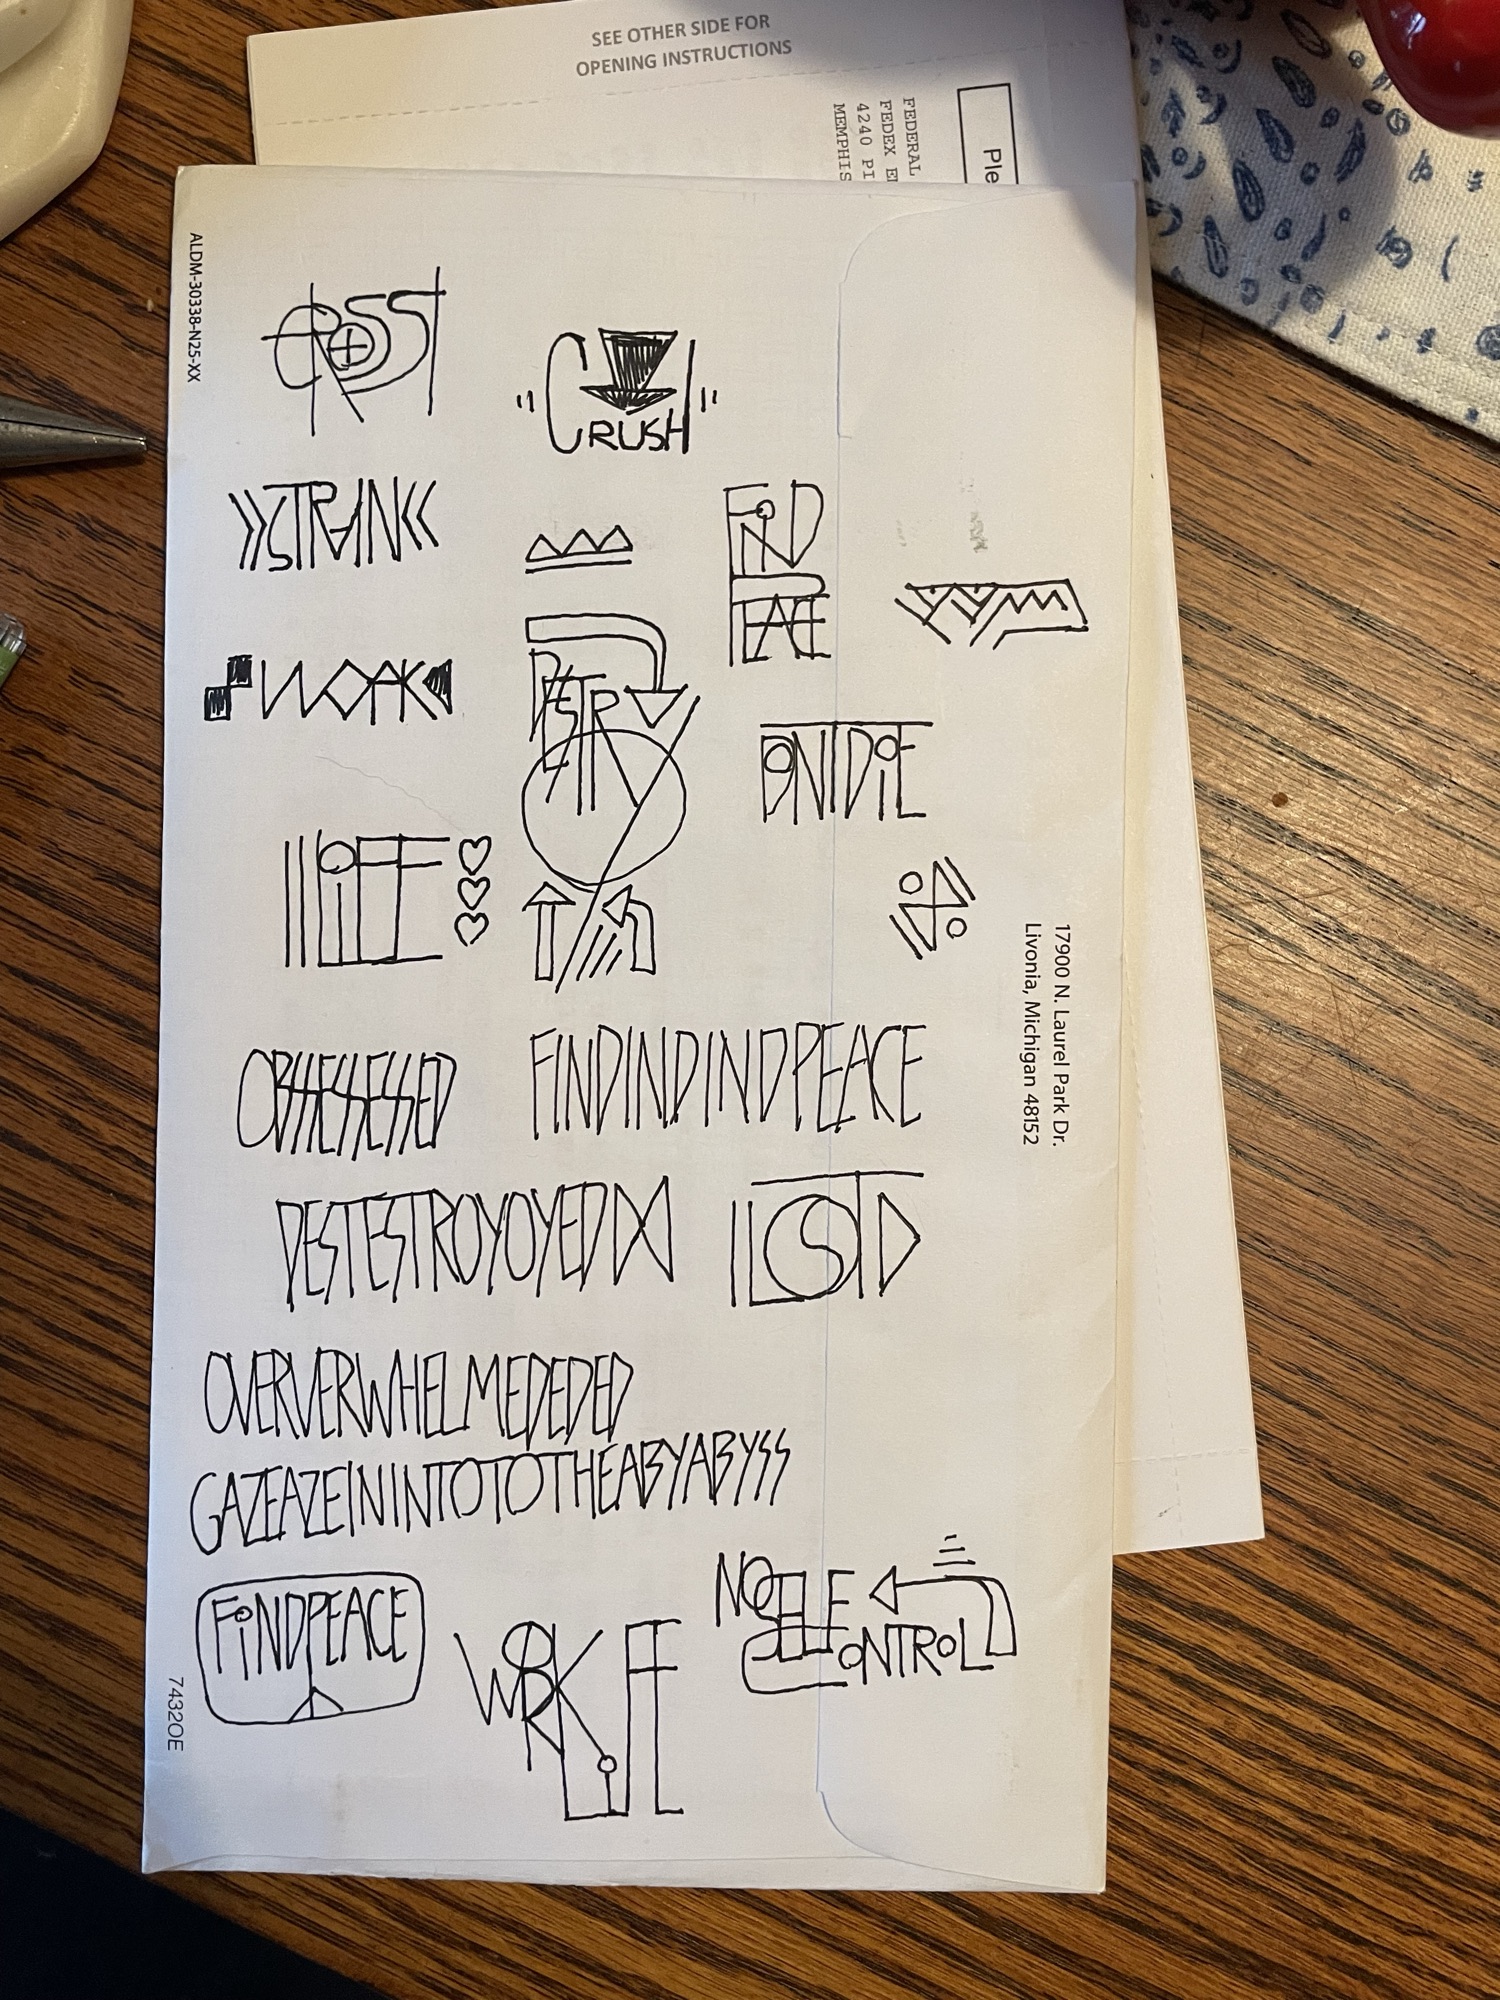 SEE OTHER SIDE FOR
OPENING INSTRUCTIONS
Ple
FEDERAL
FEDEX
4240 PI
MEMPHIS
ALDM-30338-N25-XX
CRUSH
STRAIN
FIND
PEACE
WORK
DONT DIE
LIFE
17900 N. Laurel Park Dr.
Livonia, Michigan 48152
OBSHESHESSED
FINDINDINDPEACE
DESTESTROYOYED
LOST
OVERVERWHELMEDEDED
GAZEAZEININTOTOTHEABYABYSS
FiNDPEACE
NO SELF
CONTROL
WORK
LIFE
7432OE